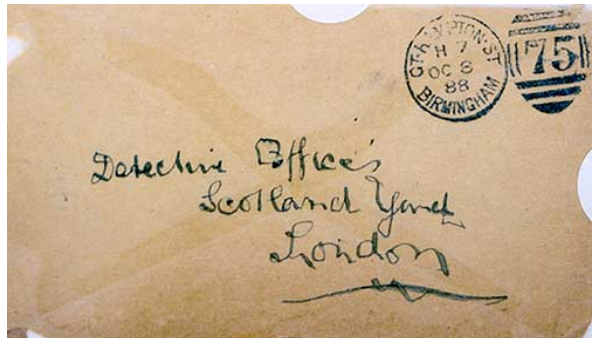 GT-HAMPTON-ST
H 7
OC 8
88
BIRMINGHAM
75
Detective Offices
Scotland Yard
London